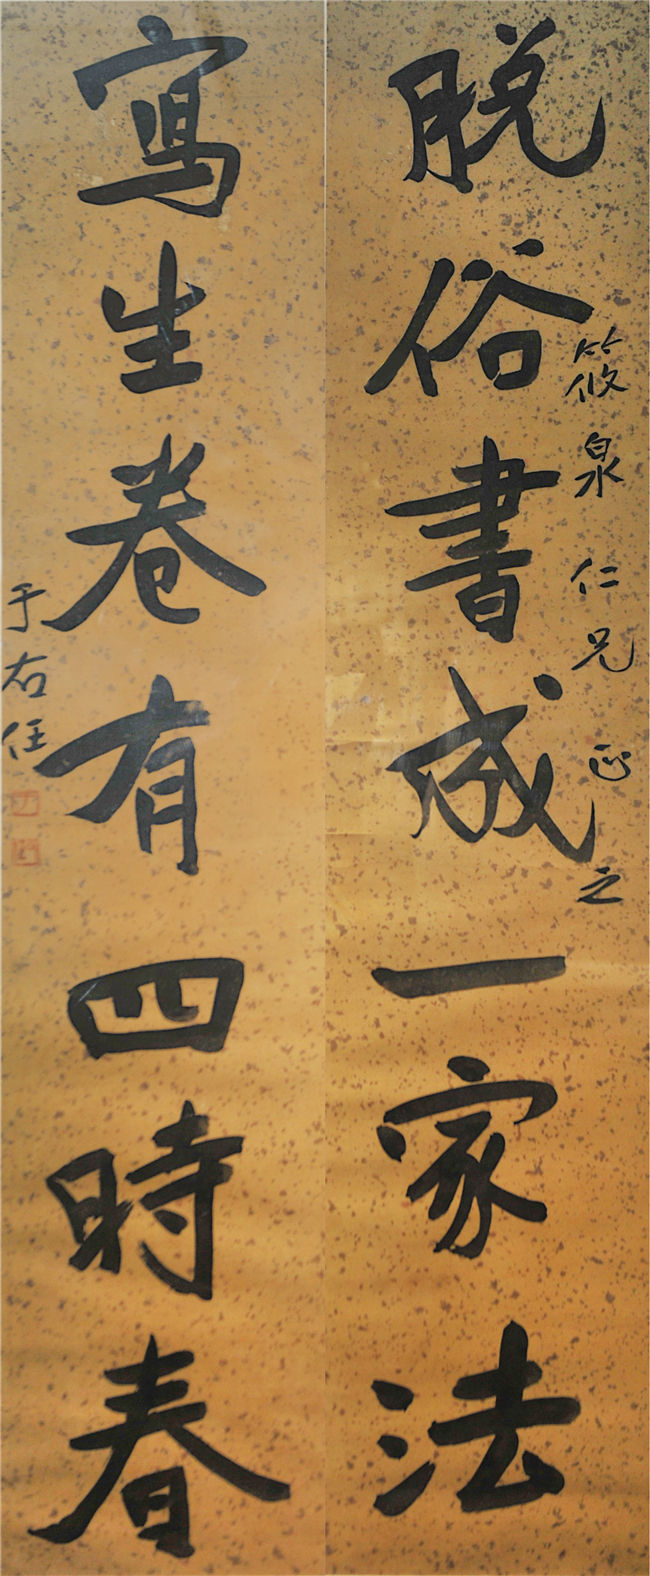 脫俗書成一家法
筱泉仁兄正之
寫生卷有四時春
于右任